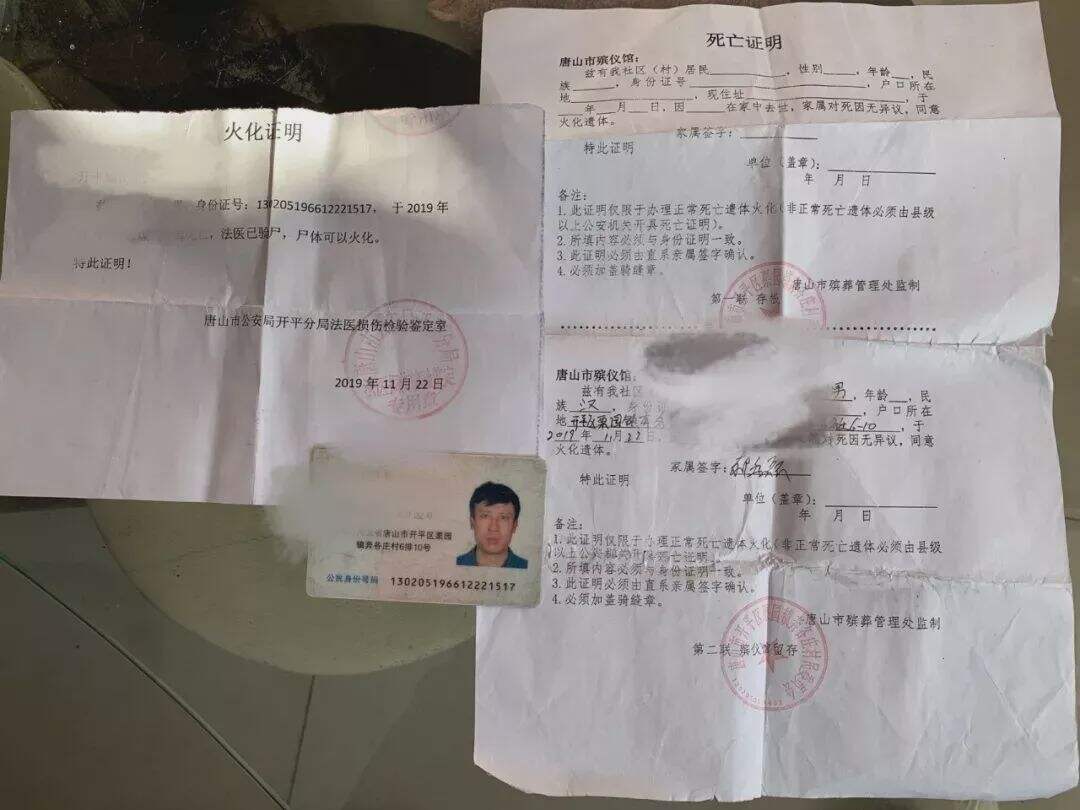 火化证明
身份证号：130205196612221517，于2019年
法医已验尸，尸体可以火化。
特此证明！
唐山市公安局开平分局法医损伤检验鉴定室
2019年11月22日
唐山市开平区栗园
镇弃各庄村6排10号
公民身份号码 130205196612221517
死亡证明
唐山市殡仪馆：
兹有我社区（村）居民，性别，年龄，民
族，身份证号，户口所在
地，现住址，于
年月日，因在家中去世，家属对死因无异议，同意
火化遗体。
家属签字：
特此证明
单位（盖章）：
年 月 日
备注：
1.此证明仅限于办理正常死亡遗体火化（非正常死亡遗体必须由县级
以上公安机关开具死亡证明）。
2.所填内容必须与身份证明一致。
3.此证明必须由直系亲属签字确认。
4.必须加盖骑缝章。
唐山市殡葬管理处监制
第一联 存根
唐山市殡仪馆：
兹有我社区 男，年龄，民
族汉，身份证 户口所在
地开平栗园镇 6-10，于
2019年11月22日， 对死因无异议，同意
火化遗体。
家属签字：
特此证明
单位（盖章）：
年 月 日
备注：
1.此证明仅限于办理正常死亡遗体火化（非正常死亡遗体必须由县级
以上公安机关开具死亡证明）。
2.所填内容必须与身份证明一致。
3.此证明必须由直系亲属签字确认。
4.必须加盖骑缝章。
唐山市殡葬管理处监制
第二联 殡仪馆留存